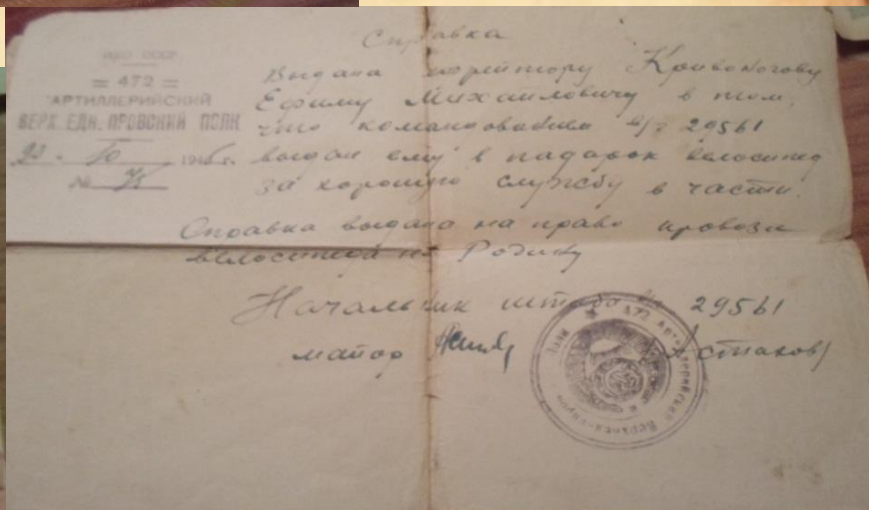 Справка
НКО СССР
= 472 =
АРТИЛЛЕРИЙСКИЙ
ВЕРХ. ЕДН. ПРОВСКИЙ ПОЛК
23. 10 194 г.
№
Выдана ефрейтору Кривоногову
Ефиму Михайловичу в том,
что командованием в/ч 29561
выдан ему в подарок велосипед
за хорошую службу в части.
Справка выдана на право провоза
велосипеда на Родину
Начальник штаба в/ч 29561
майор Астахов
472 Артиллерийский Верхне